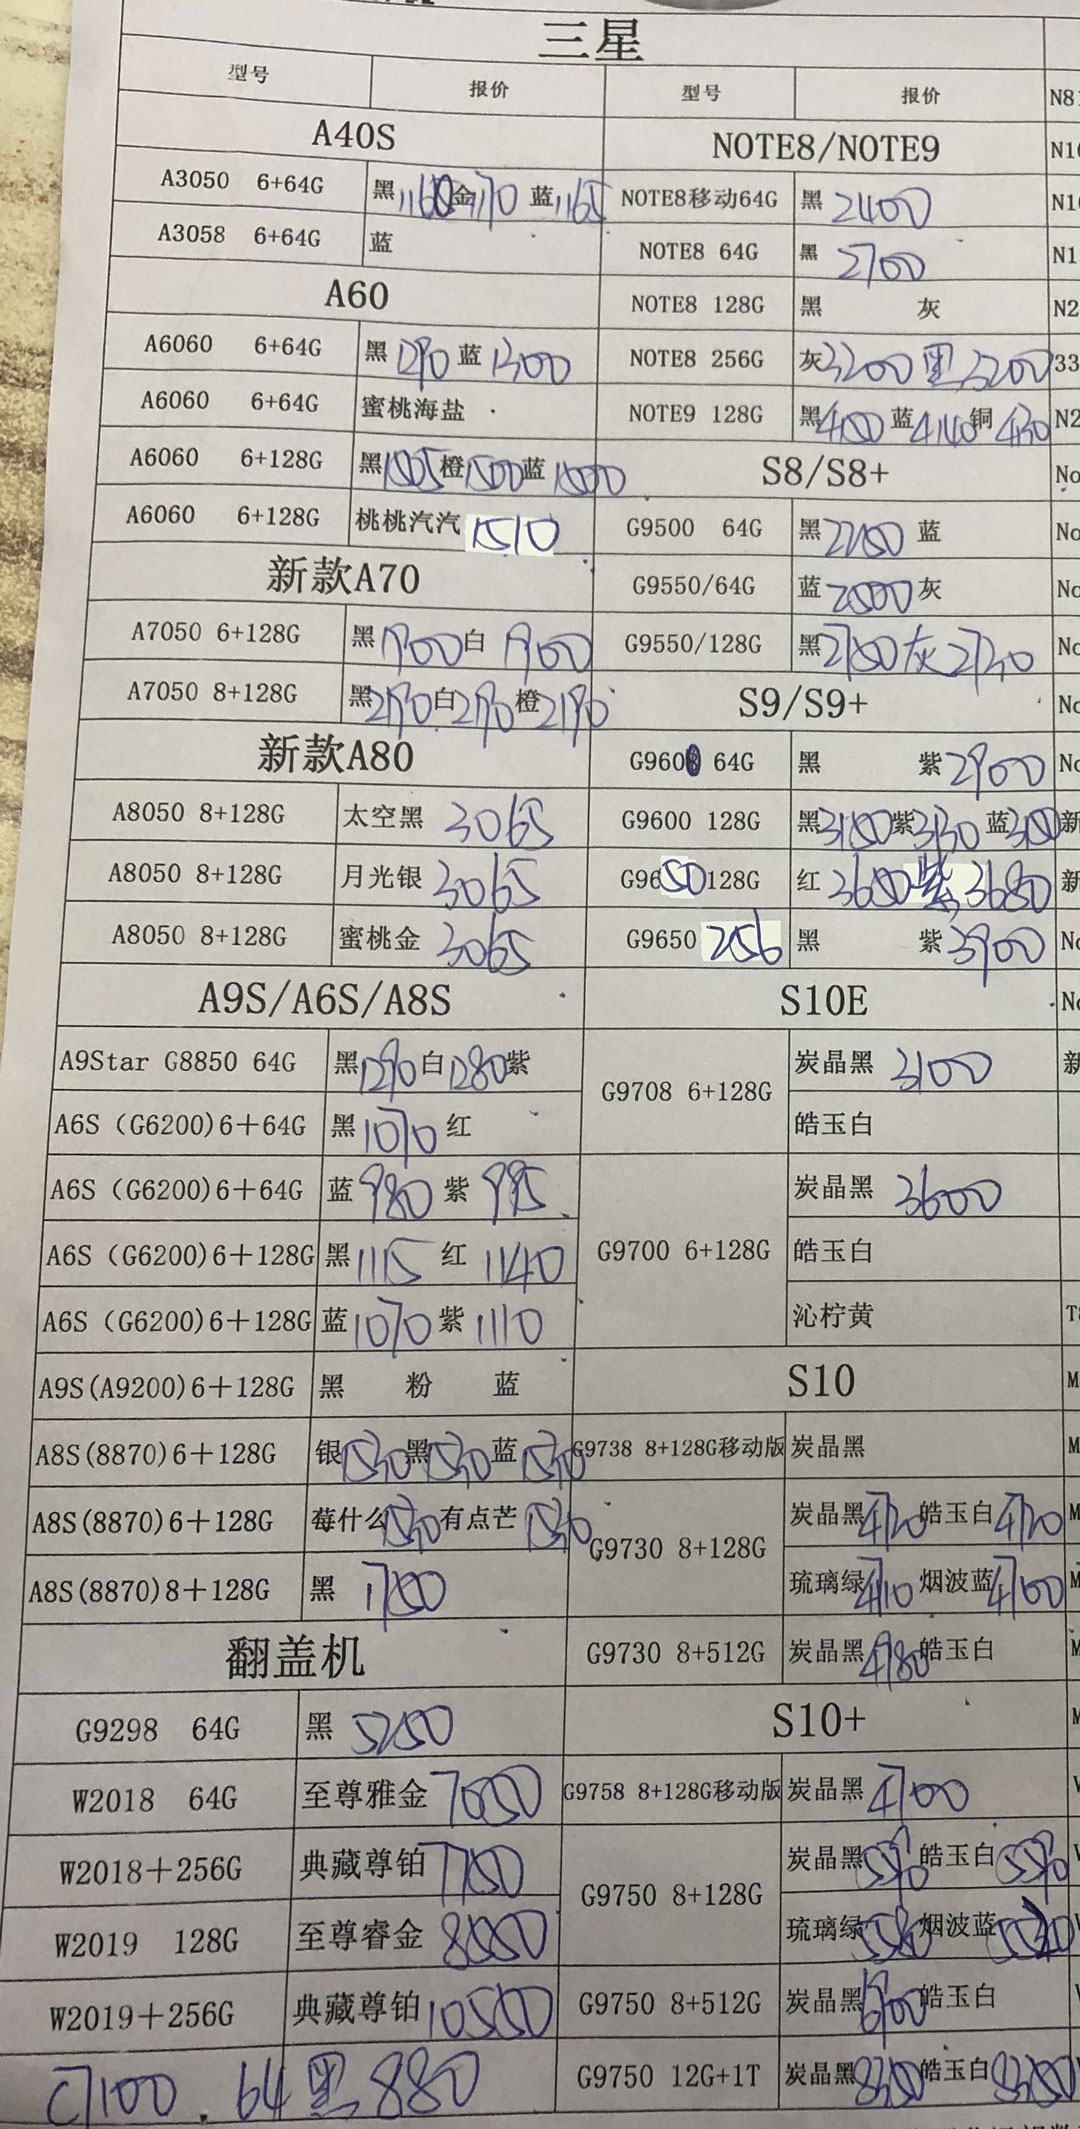 三星
型号 报价 型号 报价
A40S NOTE8/NOTE9
A3050 6+64G 黑1160金1170 蓝1165 NOTE8移动64G 黑 2400
A3058 6+64G 蓝 NOTE8 64G 黑 2700
A60 NOTE8 128G 黑 灰
A6060 6+64G 黑1290 蓝1300 NOTE8 256G 灰3200 黑3200
A6060 6+64G 蜜桃海盐 NOTE9 128G 黑 蓝4140铜
A6060 6+128G 黑1505橙1500蓝1500 S8/S8+
A6060 6+128G 桃桃汽汽 1510 G9500 64G 黑 蓝
新款A70 G9550/64G 蓝 灰
A7050 6+128G 黑1900白 1900 G9550/128G 黑 灰
A7050 8+128G 黑2190白2190橙2190 S9/S9+
新款A80 G960 64G 黑 紫2900
A8050 8+128G 太空黑 3065 G9600 128G 黑 紫3130 蓝
A8050 8+128G 月光银 3065 G9650128G 红3650紫3680
A8050 8+128G 蜜桃金 3065 G9650 256 黑 紫3900
A9S/A6S/A8S S10E
A9Star G8850 64G 黑1290白1280紫 G9708 6+128G 炭晶黑 3100
A6S (G6200)6+64G 黑1070红 皓玉白
A6S (G6200)6+64G 蓝980 紫995 G9700 6+128G 炭晶黑 3600
A6S (G6200)6+128G 黑1115 红1140 皓玉白
A6S (G6200)6+128G 蓝1070紫1110 沁柠黄
A9S(A9200)6+128G 黑 粉 蓝 S10
A8S(8870)6+128G 银1530黑1530蓝1530 G9738 8+128G移动版 炭晶黑
A8S(8870)6+128G 莓什么1530有点芒1530 G9730 8+128G 炭晶黑4720皓玉白4720
A8S(8870)8+128G 黑 1750 琉璃绿4710 烟波蓝4700
翻盖机 G9730 8+512G 炭晶黑4980皓玉白
G9298 64G 黑 5250 S10+
W2018 64G 至尊雅金7050 G9758 8+128G移动版 炭晶黑4700
W2018+256G 典藏尊铂7750 G9750 8+128G 炭晶黑5590皓玉白5590
W2019 128G 至尊睿金8050 琉璃绿5580烟波蓝
W2019+256G 典藏尊铂10550 G9750 8+512G 炭晶黑6900皓玉白
C7100.64黑880 G9750 12G+1T 炭晶黑8350皓玉白8350